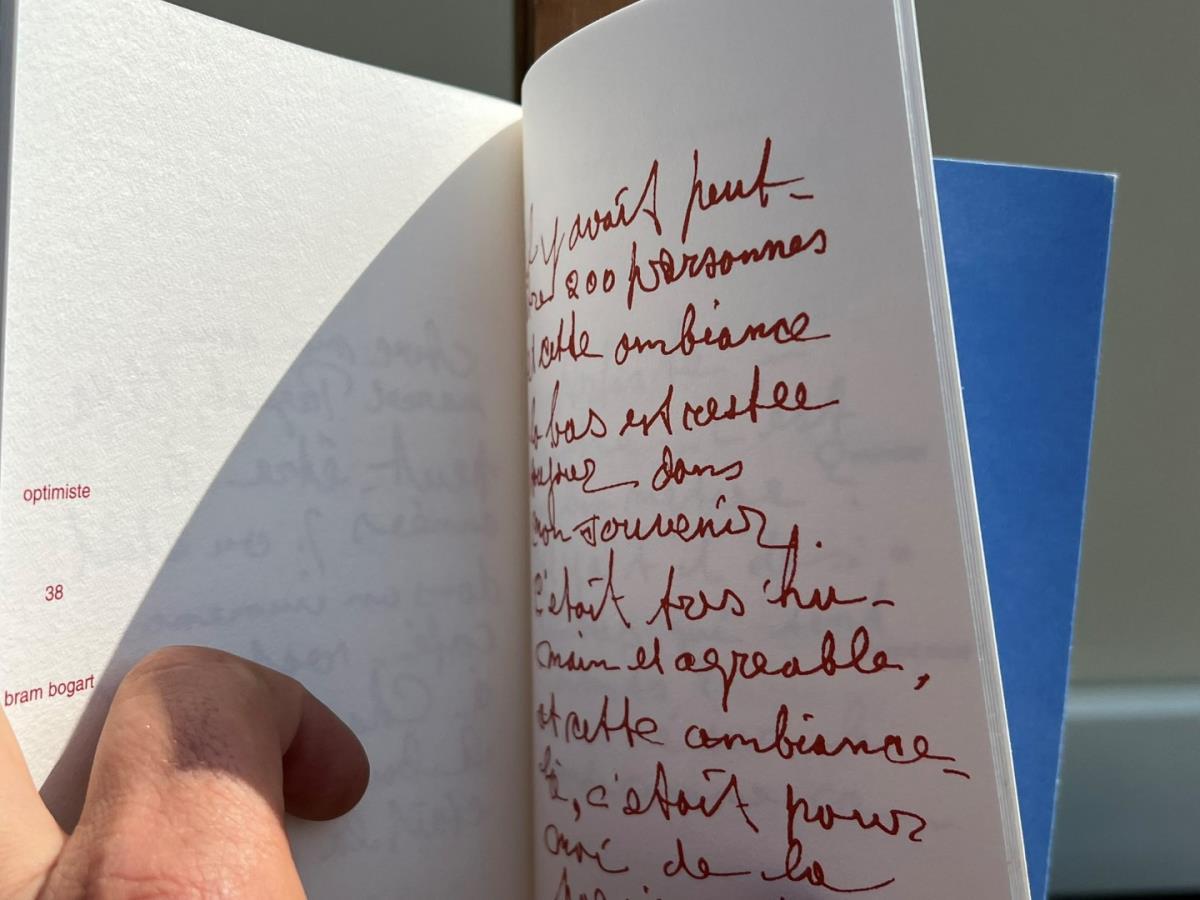 optimiste
38
bram bogart
y avait peut-
200 personnes
cette ambiance
bas est restee
dans
mon souvenir.
C'était tres hu-
main et agreable,
et cette ambiance-
là, c'était pour
moi de la